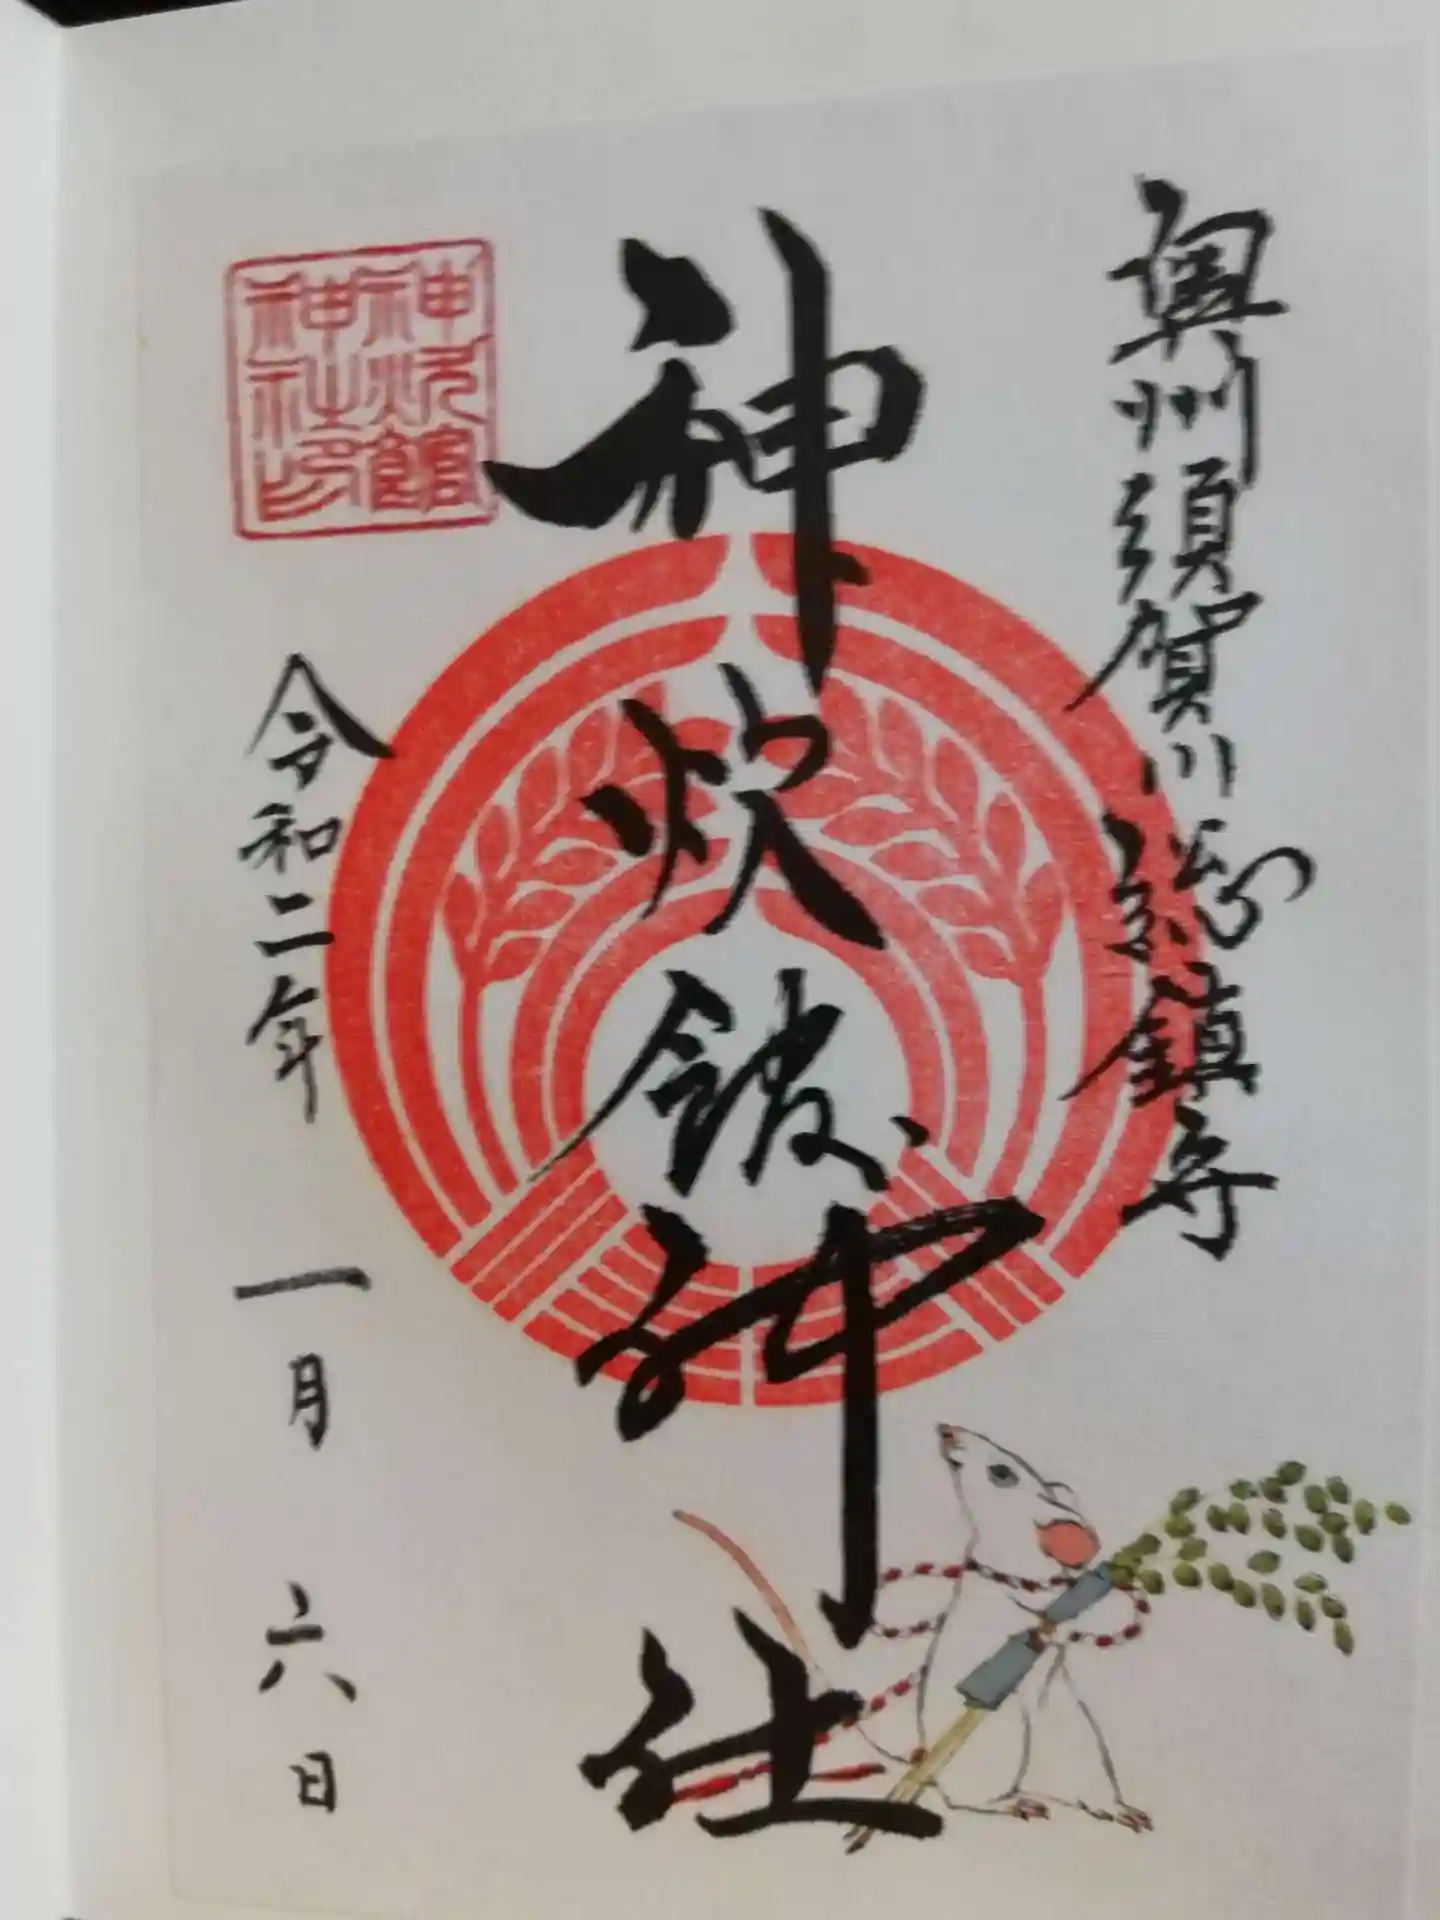 奥州須賀川総鎮守
神炊館神社
神炊館
神社印
令和二年 一月 六日